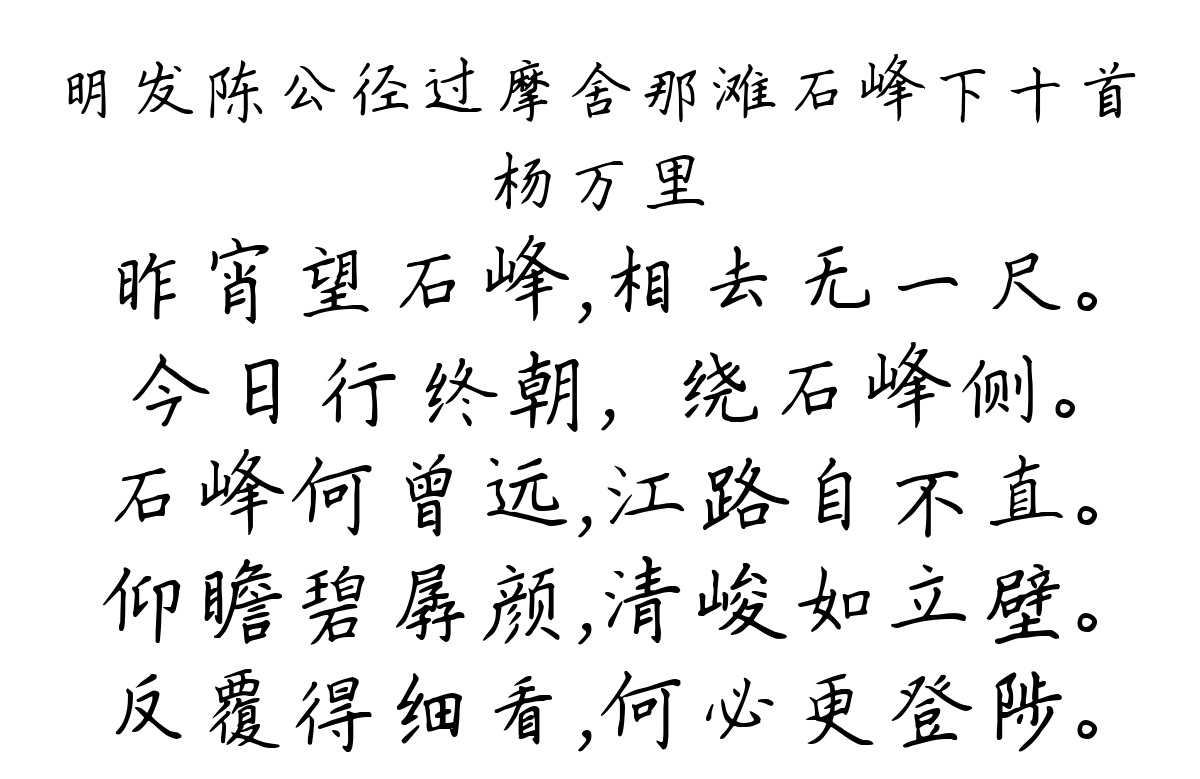 明发陈公径过摩舍那滩石峰下十首
杨万里
昨宵望石峰,相去无一尺。
今日行终朝，绕石峰侧。
石峰何曾远,江路自不直。
仰瞻碧孱颜,清峻如立壁。
反覆得细看,何必更登陟。